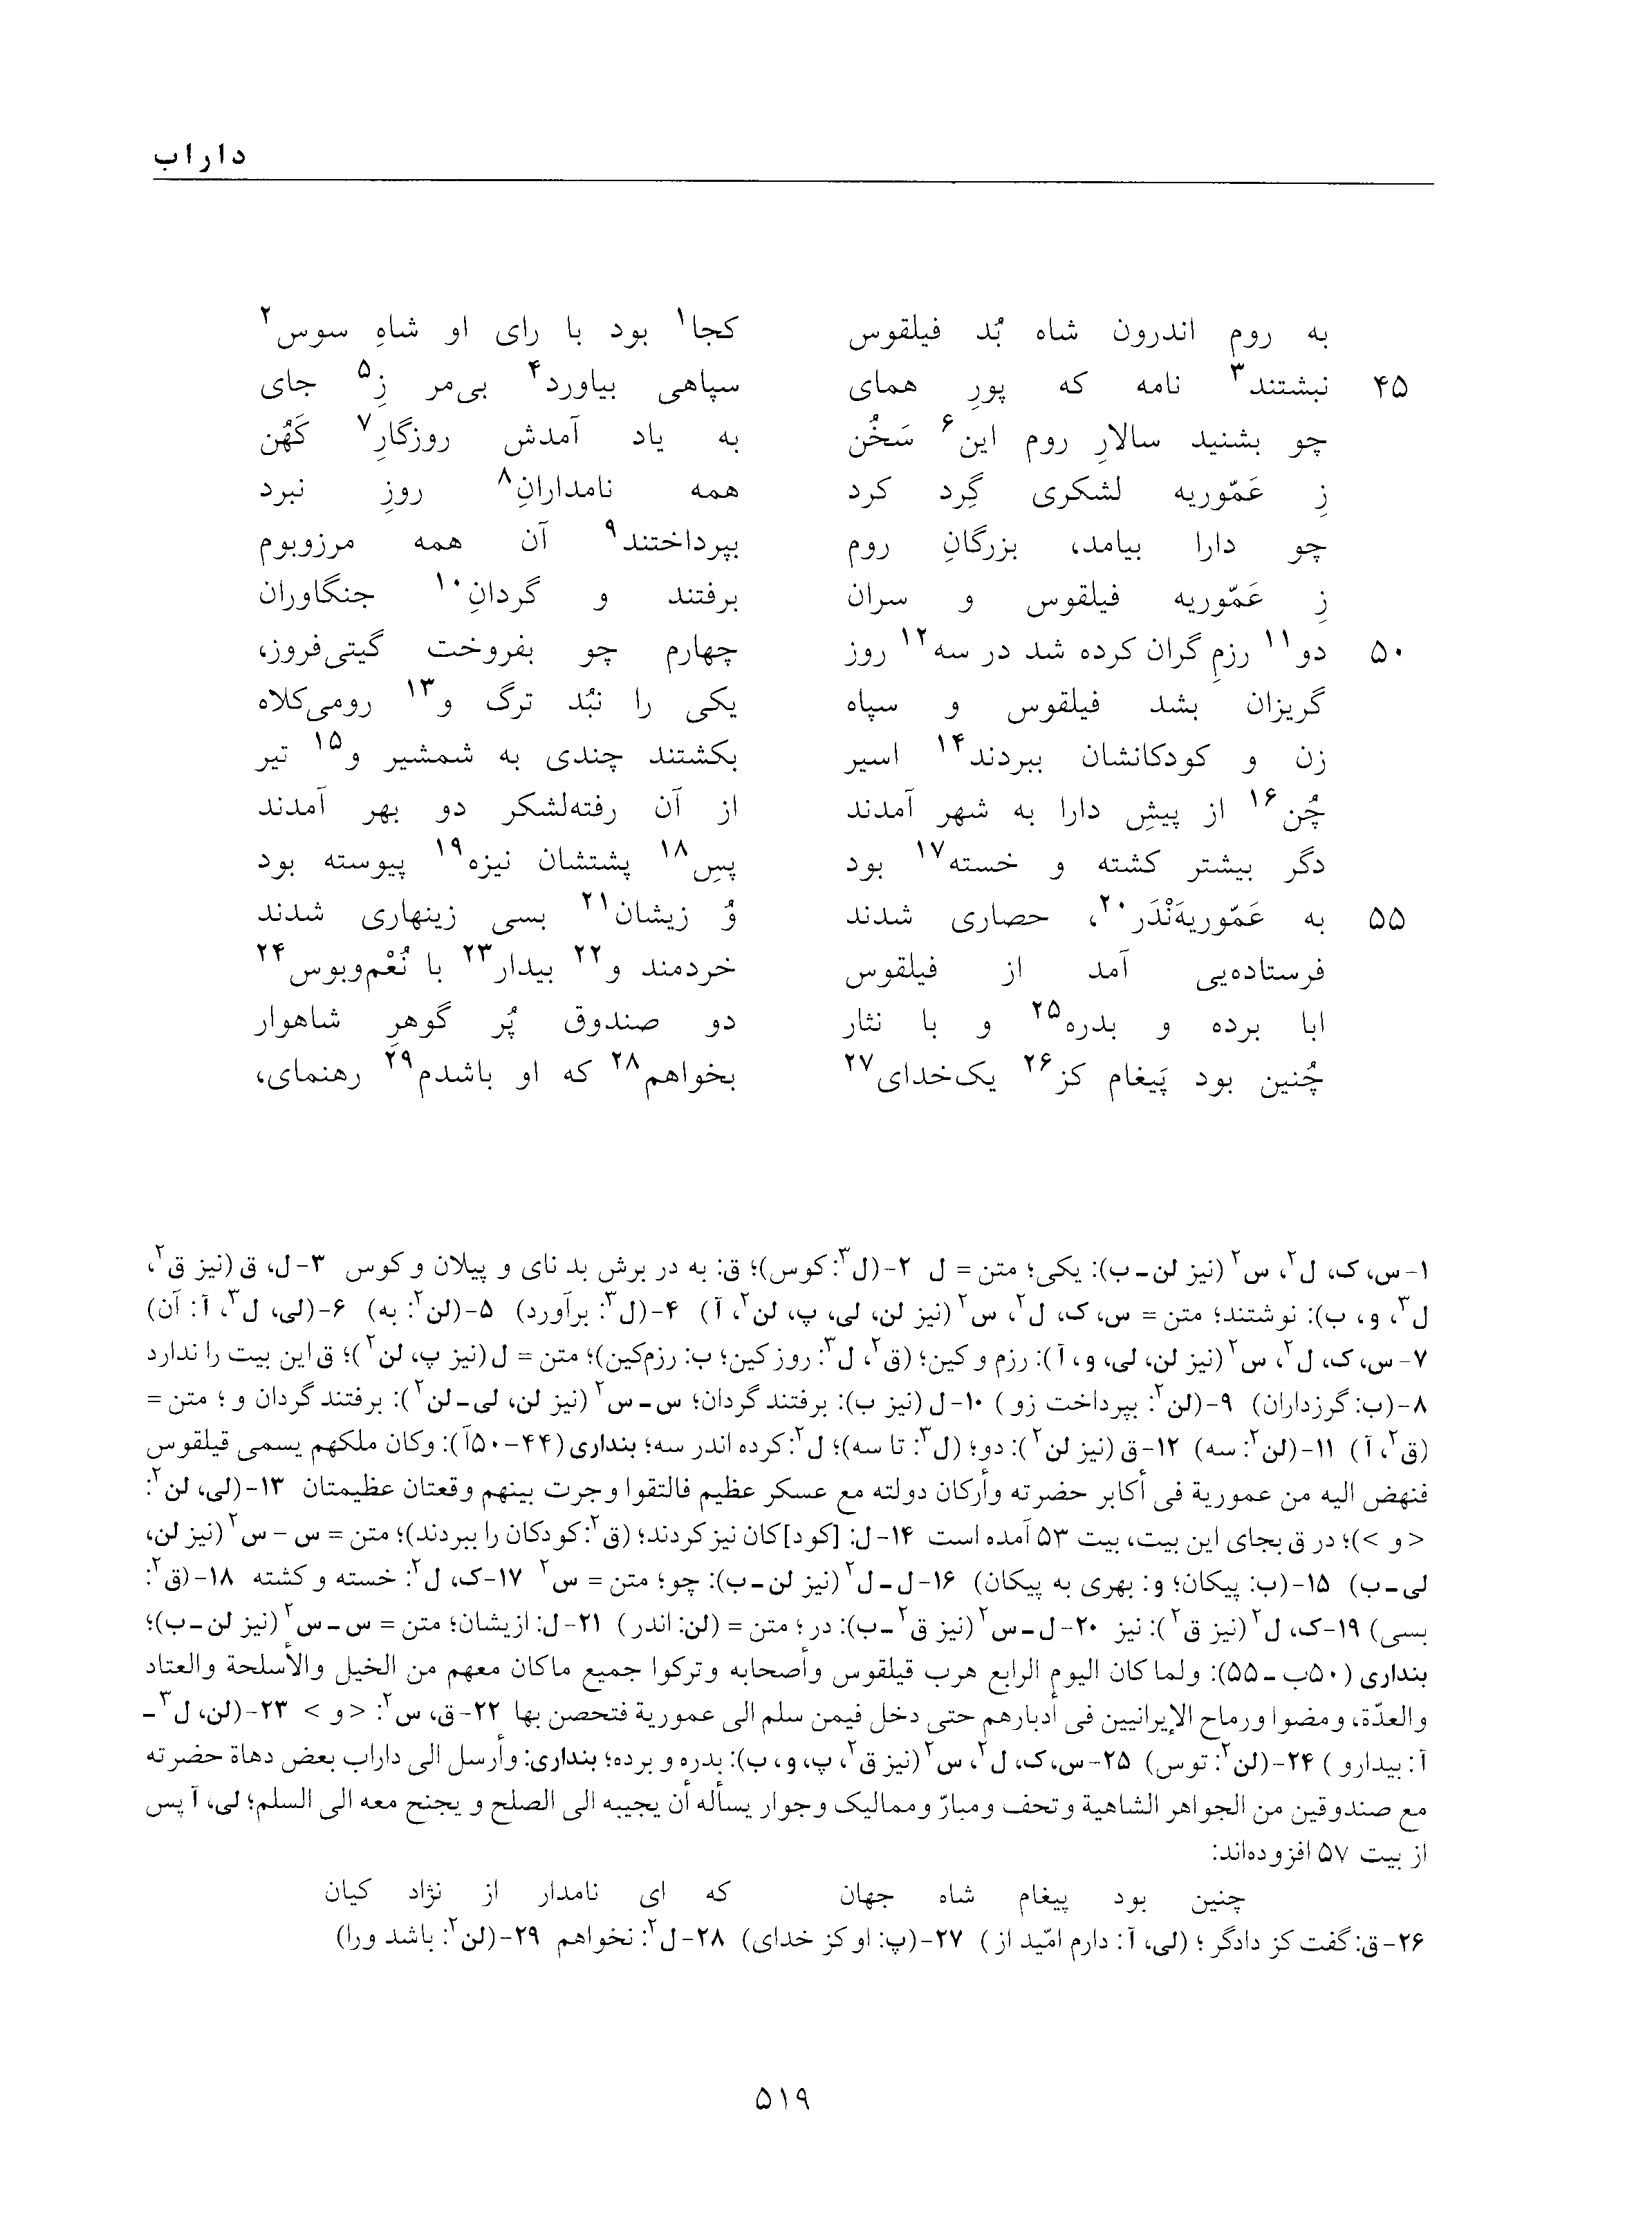 داراب
به روم اندرون شاه بُد فیلقوس کجا۱ بود با رای او شاهِ سوس۲
۴۵ نبشتند۳ نامه که پورِ همای سپاهی بیاورد۴ بی‌مر زِ۵ جای
چو بشنید سالارِ روم این۶ سَخُن به یاد آمدش روزگارِ۷ کَهُن
زِ عَمّوریه لشکری گِرد کرد همه نامدارانِ۸ روزِ نبرد
چو دارا بیامد، بزرگانِ روم بپرداختند۹ آن همه مرزوبوم
زِ عَمّوریه فیلقوس و سران برفتند و گردانِ۱۰ جنگاوران
۵۰ دو۱۱ رزمِ گران کرده شد در سه۱۲ روز چهارم چو بفروخت گیتی‌فروز،
گریزان بشد فیلقوس و سپاه یکی را نبُد ترگ و۱۳ رومی‌کلاه
زن و کودکانشان ببردند۱۴ اسیر بکشتند چندی به شمشیر و۱۵ تیر
چُن۱۶ از پیشِ دارا به شهر آمدند از آن رفته‌لشکر دو بهر آمدند
دگر بیشتر کشته و خسته۱۷ بود پسِ۱۸ پشتشان نیزه۱۹ پیوسته بود
۵۵ به عَمّوریه‌نْدَر۲۰، حصاری شدند وُ زیشان۲۱ بسی زینهاری شدند
فرستاده‌یی آمد از فیلقوس خردمند و۲۲ بیدار۲۳ با نُعْم‌وبوس۲۴
ابا برده و بدره۲۵ و با نثار دو صندوق پُر گوهرِ شاهوار
چُنین بود پَیغام کز۲۶ یک‌خدای۲۷ بخواهم۲۸ که او باشدم۲۹ رهنمای،
۱-س، ک، ل۲، س۲ (نیز لن-ب): یکی؛ متن = ل ۲-(ل۳: کوس)؛ ق: به در برش بد نای و پیلان و کوس ۳-ل، ق (نیز ق۲،
ل۳، و، ب): نوشتند؛ متن = س، ک، ل۲، س۲ (نیز لن، لی، پ، لن۲، آ) ۴-(ل۳: برآورد) ۵-(لن۲: به) ۶-(لی، ل۳، آ: آن)
۷-س، ک، ل۲، س۲ (نیز لن، لی، و، آ): رزم و کین؛ (ق۲، ل۳: روز کین؛ ب: رزم‌کین)؛ متن = ل (نیز پ، لن۲)؛ ق این بیت را ندارد
۸-(ب: گرزداران) ۹-(لن۲: بپرداخت زو) ۱۰-ل (نیز ب): برفتند گردان؛ س-س۲ (نیز لن، لی-لن۲): برفتند گردان و؛ متن =
(ق۲، آ) ۱۱-(لن۲: سه) ۱۲-ق (نیز لن۲): دو؛ (ل۳: تا سه)؛ ل۲: کرده اندر سه؛ بنداری (۴۴-۵۰آ): وکان ملکهم یسمی قیلقوس
فنهض الیه من عموریة فی أکابر حضرته وأرکان دولته مع عسکر عظیم فالتقوا وجرت بینهم وقعتان عظیمتان ۱۳-(لی، لن۲:
<و>)؛ در ق بجای این بیت، بیت ۵۳ آمده است ۱۴-ل: [کود]کان نیز کردند؛ (ق۲: کودکان را ببردند)؛ متن = س - س۲ (نیز لن،
لی-ب) ۱۵-(ب: پیکان؛ و: بهری به پیکان) ۱۶-ل-ل۲ (نیز لن-ب): چو؛ متن = س۲ ۱۷-ک، ل۲: خسته و کشته ۱۸-(ق۲:
بسی) ۱۹-ک، ل۲ (نیز ق۲): نیز ۲۰-ل-س۲ (نیز ق۲-ب): در؛ متن = (لن: اندر) ۲۱-ل: ازیشان؛ متن = س-س۲ (نیز لن-ب)؛
بنداری (۵۰ب-۵۵): ولما کان الیوم الرابع هرب قیلقوس وأصحابه وترکوا جمیع ماکان معهم من الخیل والأسلحة والعتاد
والعدّة، ومضوا ورماح الإیرانیین فی أدبارهم حتی دخل فیمن سلم الی عموریة فتحصن بها ۲۲-ق، س۲: <و> ۲۳-(لن، ل۳-
آ: بیدارو) ۲۴-(لن۲: توس) ۲۵-س، ک، ل۲، س۲ (نیز ق۲، پ، و، ب): بدره و برده؛ بنداری: وأرسل الی داراب بعض دهاة حضرته
مع صندوقین من الجواهر الشاهیة وتحف ومبارّ وممالیک وجوار یسأله أن یجیبه الی الصلح و یجنح معه الی السلم؛ لی، آ پس
از بیت ۵۷ افزوده‌اند:
چنین بود پیغام شاه جهان که ای نامدار از نژاد کیان
۲۶-ق: گفت کز دادگر؛ (لی، آ: دارم امّید از) ۲۷-(پ: او کز خدای) ۲۸-ل۲: نخواهم ۲۹-(لن۲: باشد ورا)
۵۱۹